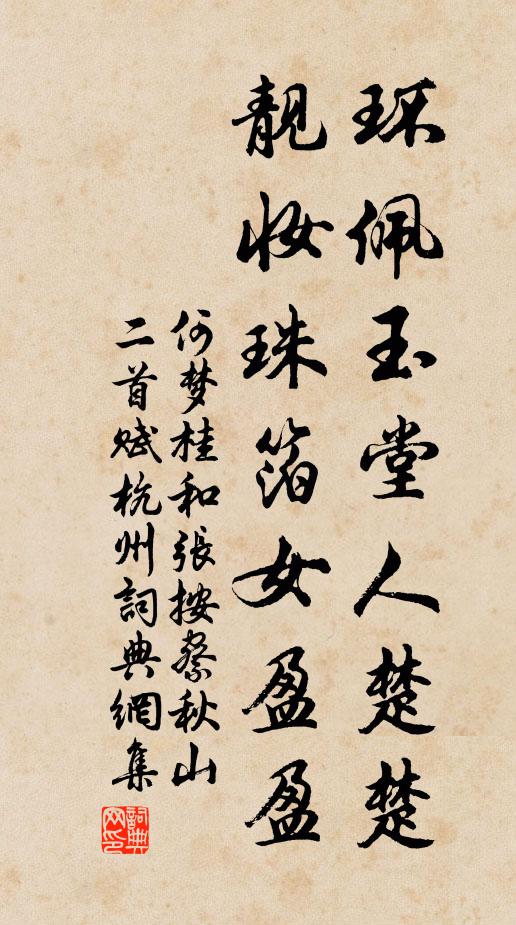 环佩玉堂人楚楚
靚妆珠箔女盈盈
何梦桂和張按察秋山
二首赋杭州詞典網集
詞典网印